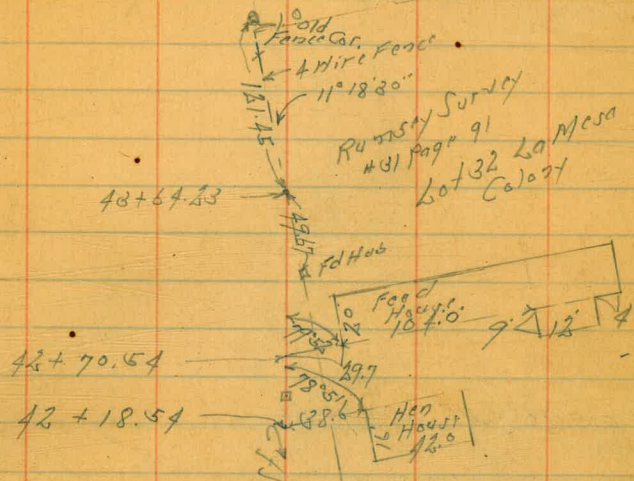 Old
Fence Cor.
4 Wire Fence
11° 18' 30"
121.45
Rumsey Survey
#31 Page 91
Lot 32 La Mesa
Colony
43+64.23
49.67
Fd Hub
Feed
House
104.0
20
9
12
4
29.7
42 + 70.54
78°51'
38.6
42 + 18.54
Hen
House
42.0
16